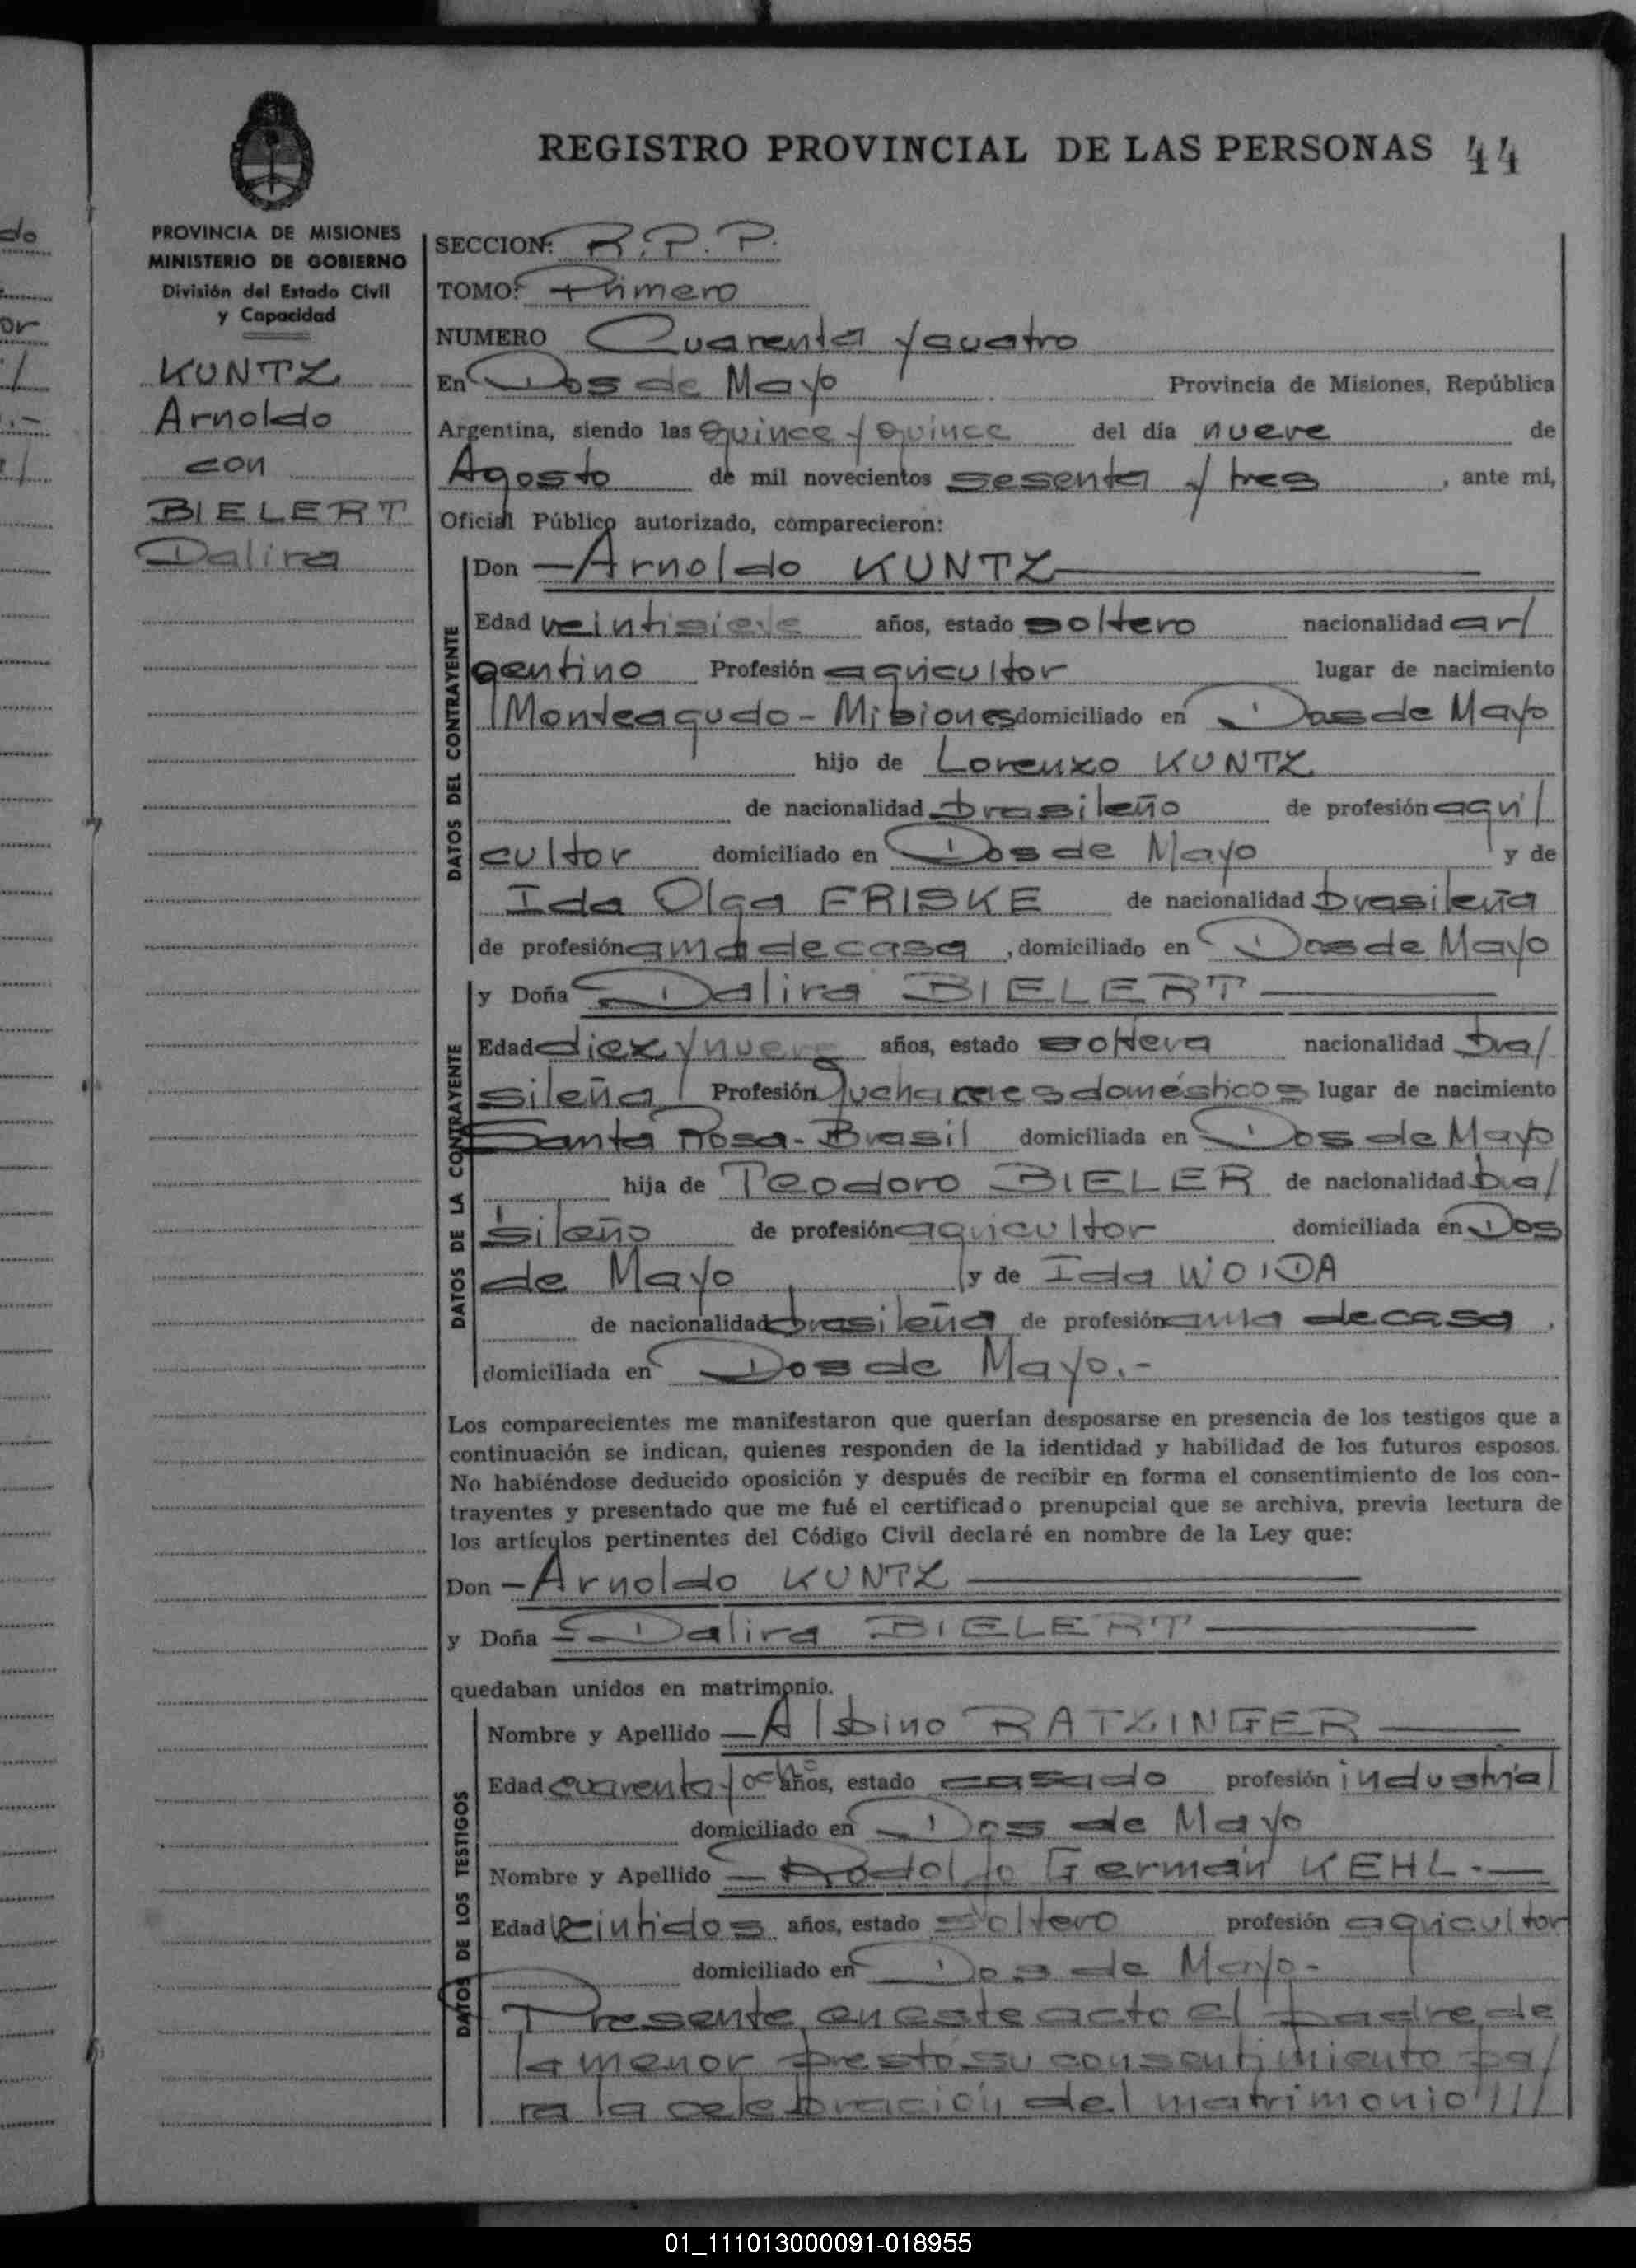 REGISTRO PROVINCIAL DE LAS PERSONAS 44
PROVINCIA DE MISIONES
MINISTERIO DE GOBIERNO
División del Estado Civil
y Capacidad
KUNTZ
Arnoldo
con
BIELERT
Dalira
SECCION: R.P.P.
TOMO: Primero
NUMERO Cuarenta y cuatro
En Dos de Mayo Provincia de Misiones, República
Argentina, siendo las quince y quince del día nueve de
Agosto de mil novecientos sesenta y tres, ante mi,
Oficial Público autorizado, comparecieron:
DATOS DEL CONTRAYENTE
Don — Arnoldo KUNTZ —
Edad veintisiete años, estado soltero nacionalidad ar/
gentino Profesión agricultor lugar de nacimiento
Monteagudo - Misiones domiciliado en Dos de Mayo
hijo de Lorenzo KUNTZ
de nacionalidad brasileño de profesión agri/
cultor domiciliado en Dos de Mayo y de
Ida Olga FRISKE de nacionalidad brasileña
de profesión ama de casa, domiciliado en Dos de Mayo
DATOS DE LA CONTRAYENTE
y Doña Dalira BIELERT —
Edad diez y nueve años, estado soltera nacionalidad bra/
sileña Profesión quehaceres domésticos lugar de nacimiento
Santa Rosa - Brasil domiciliada en Dos de Mayo
hija de Teodoro BIELER de nacionalidad bra/
sileño de profesión agricultor domiciliada en Dos
de Mayo y de Ida WOIDA
de nacionalidad brasileña de profesión ama de casa,
domiciliada en Dos de Mayo.-
Los comparecientes me manifestaron que querían desposarse en presencia de los testigos que a
continuación se indican, quienes responden de la identidad y habilidad de los futuros esposos.
No habiéndose deducido oposición y después de recibir en forma el consentimiento de los con-
trayentes y presentado que me fué el certificado prenupcial que se archiva, previa lectura de
los artículos pertinentes del Código Civil declaré en nombre de la Ley que:
Don — Arnoldo KUNTZ —
y Doña — Dalira BIELERT —
quedaban unidos en matrimonio.
DATOS DE LOS TESTIGOS
Nombre y Apellido — Albino RATZINGER —
Edad cuarenta y ocho años, estado casado profesión industrial
domiciliado en Dos de Mayo
Nombre y Apellido — Rodolfo Germán KEHL.—
Edad veintidos años, estado soltero profesión agricultor
domiciliado en Dos de Mayo-
Presente en este acto el padre de
la menor prestó su consentimiento pa/
ra la celebración del matrimonio///
do
or
01_111013000091-018955